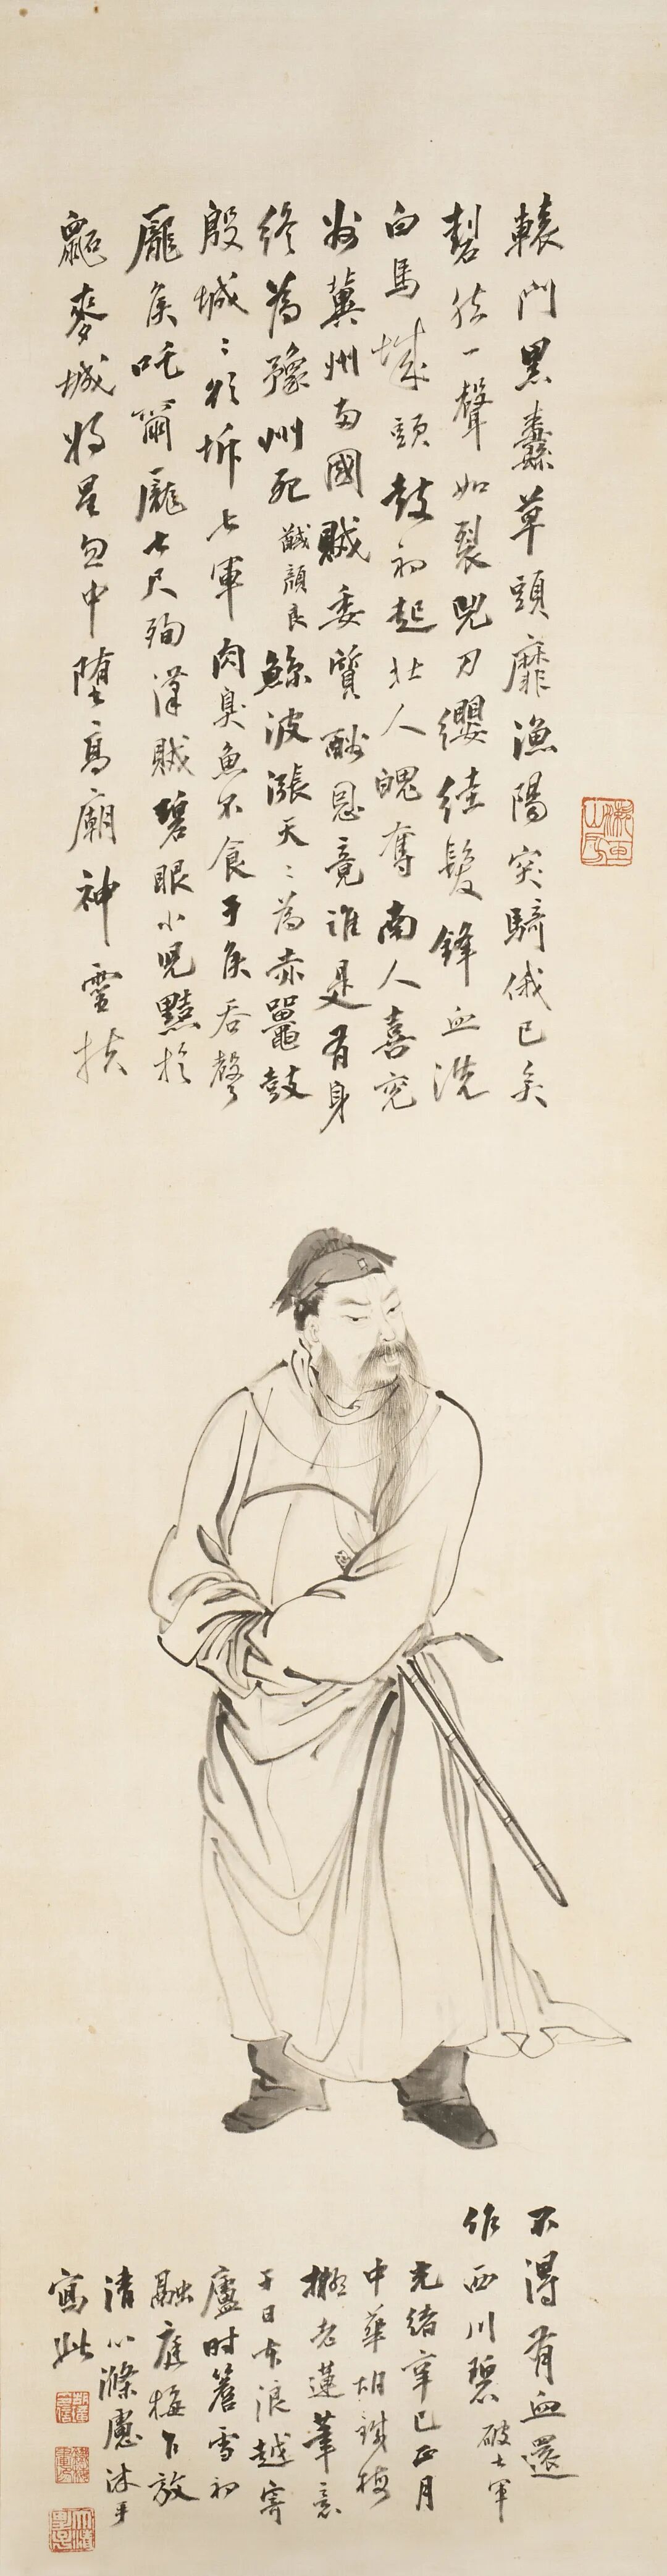 轅門黑纛草頭靡漁陽突騎俄已矣
砉然一聲如裂兕刀纓絓髮鋒血洗
白馬城頭鼓初起北人魄奪南人喜兗
州冀州南國賊委質酬恩竟誰是有身
終為豫州死馘顏良鯨波漲天天為赤鼉鼓
殷城城欲坼七軍肉臭魚不食于侯吞聲
龐侯吒爾龐七尺殉漢賊碧眼小兒黠於
鼫麥城將星忽中墮高廟神靈扶
不得有血還
作西川碧破七軍
光緒辛巳正月
中華胡鐵梅
擬老蓮筆意
于日本浪越寄
廬時簷雪初
融庭梅乍放
清心滌慮沐手
寫此